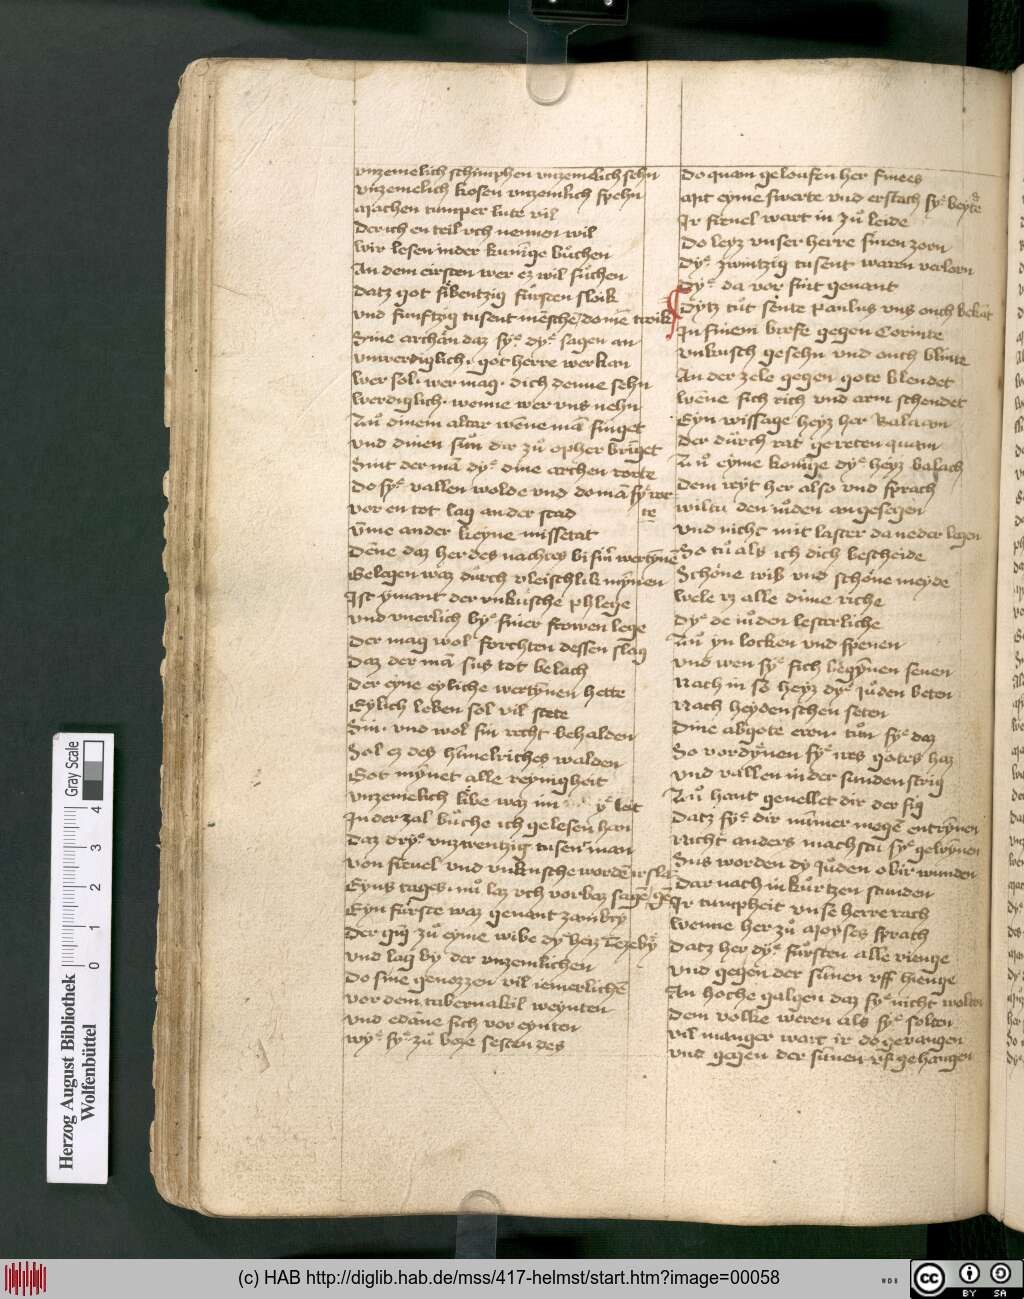 vnzemelich schimphen vnzemelich sehn
vnzemelich kosen vnzemlich spehn
Machen tumper lute vil
Der ich en teil vch nennen wil
wir lesen in der kunige bůchen
An dem eirsten wer ez wil sůchen
Datz got sibentzig fursten sloik
vnd funftzig tusent mēsche
Sine archan daz syͤ dyͤ sagen an
vnwerdiglich. got herre wer kan
wer sol. wer mag. dich denne sehn
werdiglich. wenne wer vns nehn
Zuͦ dinem altar wēne mā singet
vnd dinen suͦn dir zuͦ opher bringet
Sint der mā dyͤ dine archen rorte
Do syͤ vallen wolde vnd do mā syͤ vor
te
vor en tot lag an der stad
vmme ander keyne missetat
Dēne daz her des nachtes bi
Gelegen waz důrch vleischlik mynnen
Ist ymant der vnkusche phlege
vnd vnerlich byͤ siner frowen lege
Der mag wol forchten dessen slag
Daz der mā sus tot belach
Der eyne eyliche wertynnen hette
Eylich leben sol vil stete
Sin. vnd wol sin recht behalden
Sal ez des himelriches walden
Got mynnet alle reynigheit
vnzemelich libe waz im leit
In der zal bůche ich gelesen han
Daz dryͤ vnzwentzig tusent man
von freuel vnd vnkusche wordē irsla
Eyns tages. nuͦ laz vch vorbaz sagē gē
Eyn fůrste waz genant zambry
Der gig zuͦ eyme wibe dyͤ heiz
vnd lag by der vnzemlichen
Do sine genozzen vil iemerlichē
vor dem tabernakil weynten
vnd edāne sich vor eynten
wyͤ syͤ zuͦ boze sesten des
Do quam geloufen her finees
Mit eyme swerte vnd erslach syͤ beyde
Ir freuel wart in zuͦ leide
Do leyz vnser herre sinen zorn
Dyͤ zwintzig tusent waren verlorn
Dyͤ da vor sint genant
Dytz tůt sente Paulus vns ouch bekāt
In sinem brife gegen Corinte
vnkusch gesehn vnd ouch blinte
An der zele gegen gote blendet
wēne sich rich vnd arm schendet
Eyn wissage heyz her Balaam
Der důrch rat gereten quam
Zuͦ eyme konige dyͤ heyz balach
Dem reyt her also vnd sprach
wiltu den iuden an gesegen
vnd nicht mit laster da neder legen
So tů als ich dich bescheide
Schone wib vnd schone meyde
wele vz alle dime riche
Dyͤ de iuden lesterliche
Zuͦ yn locken vnd spenen
vnd wen syͤ sich begynnen senen
Nach in so heyz dyͤ Juden beten
Nach heydenschen seten
Dine abgote eren. tůn syͤ daz
So vordynen syͤ irs gotes haz
vnd vallen in der sunden strig
Zuͦ hant geuellet dir der sig
Datz syͤ dir nimer megē entrynnen
Nicht anders machstu syͤ gewynnen
Sus worden dy Juden obir wunden
Dar nach in kůrtzen stunden
Ir tumpheit vnse herre rach
wenne her zuͦ Moyses sprach
Datz her dyͤ fůrsten alle vienge
vnd gegen der sunnen vff hienge
An hoche galgen daz syͤ nicht wolten
Dem volke weren als syͤ solten
vil manger wart ir do gevangen
vnd gegen der sunnen vf gehangen
Gray Scale
0 1 2 3 4
Herzog August Bibliothek
Wolfenbüttel
(c) HAB http://diglib.hab.de/mss/417-helmst/start.htm?image=00058
WDB
CC BY SA